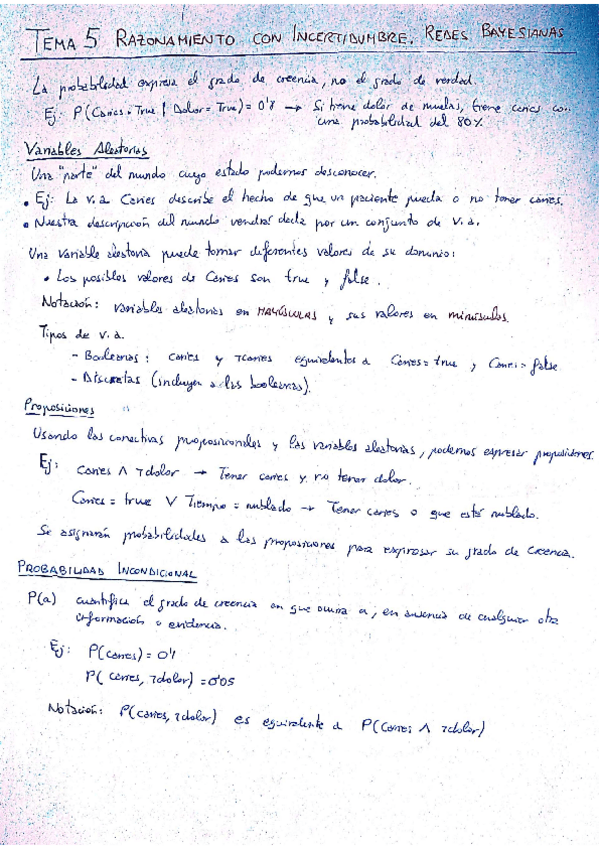 TEMA 5 RAZONAMIENTO CON INCERTIDUMBRE. REDES BAYESIANAS
La probabilidad expresa el grado de creencia, no el grado de verdad.
Ej: P(Caries = True | Dolor = True) = 0'8 → Si tiene dolor de muelas, tiene caries con
una probabilidad del 80%
Variables Aleatorias
Una "parte" del mundo cuyo estado podemos desconocer.
• Ej: La v.a Caries describe el hecho de que un paciente pueda o no tener caries.
• Nuestra descripción del mundo vendrá dada por un conjunto de v.a.
Una variable aleatoria puede tomar diferentes valores de su dominio:
• Los posibles valores de Caries son true y false.
Notación: variables aleatorias en MAYÚSCULAS y sus valores en minúsculas.
Tipos de v.a.
- Booleanas: caries y ¬caries equivalentes a Caries = true y Caries = false
- Discretas (incluyen a las booleanas).
Proposiciones
Usando las conectivas proposicionales y las variables aleatorias, podemos expresar proposiciones.
Ej: caries ∧ ¬dolor → Tener caries y no tener dolor.
Caries = true ∨ Tiempo = nublado → Tener caries o que esté nublado.
Se asignarán probabilidades a las proposiciones para expresar su grado de creencia.
PROBABILIDAD INCONDICIONAL
P(a) cuantifica el grado de creencia en que ocurra a, en ausencia de cualquier otra
información o evidencia.
Ej: P(caries) = 0'1
P(caries, ¬dolor) = 0'05
Notación: P(caries, ¬dolor) es equivalente a P(caries ∧ ¬dolor)